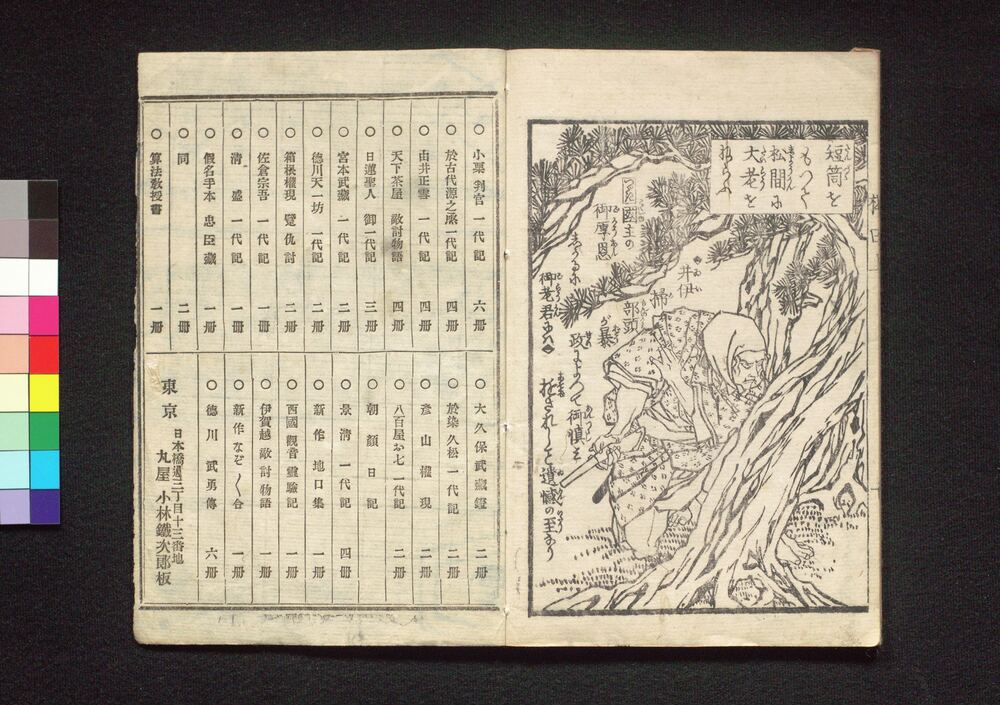 短筒を
もつて
松間に
大老を
ねらふ
国主の
御厚恩
井伊
掃
部頭
が暴
政
御慎を
御老君
遺憾の至なり
○小栗判官一代記 六冊
○於古代源之丞一代記 四冊
○由井正雪一代記 四冊
○天下茶屋敵討物語 四冊
○日蓮聖人御一代記 三冊
○宮本武藏一代記 二冊
○徳川天一坊一代記 二冊
○箱根權現躄仇討 二冊
○佐倉宗吾一代記 一冊
○清盛一代記 一冊
○假名手本忠臣藏 一冊
○同 二冊
○算法教授書 一冊
○大久保武藏鐙 二冊
○於染久松一代記 二冊
○彦山權現 二冊
○八百屋お七一代記 二冊
○朝顔日記 二冊
○景清一代記 四冊
○新作地口集 一冊
○西國觀音靈驗記 一冊
○伊賀越敵討物語 一冊
○新作なぞ〱合 一冊
○徳川武勇傳 六冊
東京
日本橋通三丁目十三番地
丸屋 小林鐵次郎板